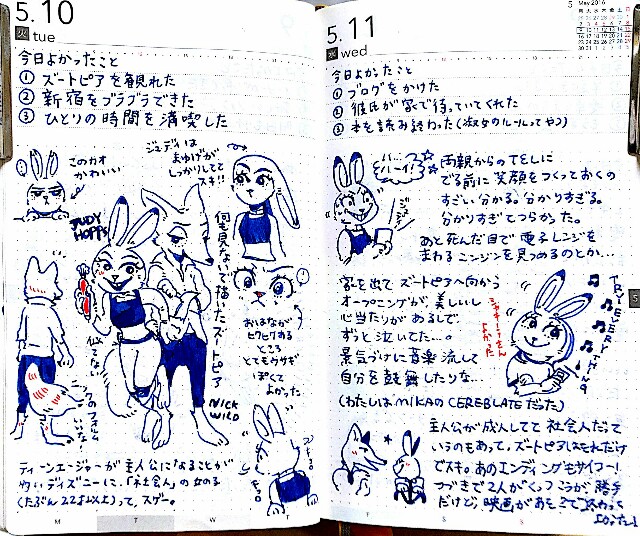 5.10
火 tue
今日よかったこと
① ズートピアを観れた
② 新宿をブラブラできた
③ ひとりの時間を満喫した
このカオ
かわいい
ジュディは
まゆげが
しっかりしてて
スキ!!
JUDY
HOPPS
何も見ないで描いたズートピア
おはなが
ヒクヒクする
ところ
とてもウサギ
ぽくて
よかった
NICK
WILD
ニックのフォルム
いいな!
ティーンエージャーが主人公になることが
ディズニーに、「社会人」の女の子
(たぶん22才以上)って、スゲー。
M
T
W
T
5.11
水 wed
5 May 2016
今日よかったこと
① ブログをかけた
② 彼氏が家で待っていてくれた
③ 本を読み終わった(淑女のルールってやつ)
両親からのTELに
でる前に笑顔をつくっておくの
すごい分かる。分かりすぎる。
分かりすぎてつらかった。
あと死んだ目で電子レンジを
まわるニンジンを見つめるのとか…
家を出てズートピアへ向から
オープニングが、美しいし
心当たりがあるしで、
ずっと泣いてた…。
景気づけに音楽流して
自分を鼓舞したりな…
(わたしはMIKAのCEREBLATEだった)
シャキーラさん
よかった
TRY EVERYTHING
主人公が成人してて社会人だって
いうのもあって、ズートピアはそれだけ
でスキ。あのエンディングもサイコー!
つづきで2人がくっつこうが勝手
だけど、映画があそこで終わって
よかった!
T
F
S
S
5